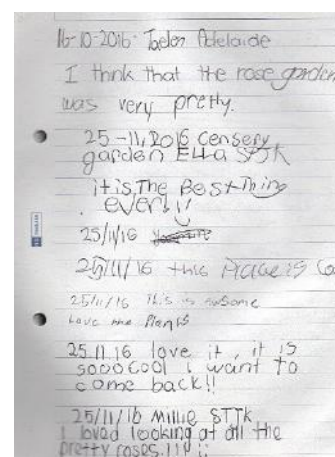 16-10-2016 Adelaide
I think that the rose garden
was very pretty.
25-11,2016 Censery
garden Ella STTK
it is The Best Thing
ever!!
25/11/16
25/11/16 this Place is
25/11/16 this is awsome
Love the Plants
25.11.16 love it, it is
soooo cool i want to
come back!!
25/11/16 Millie STTk
I loved looking at all the
pretty roses!!!!